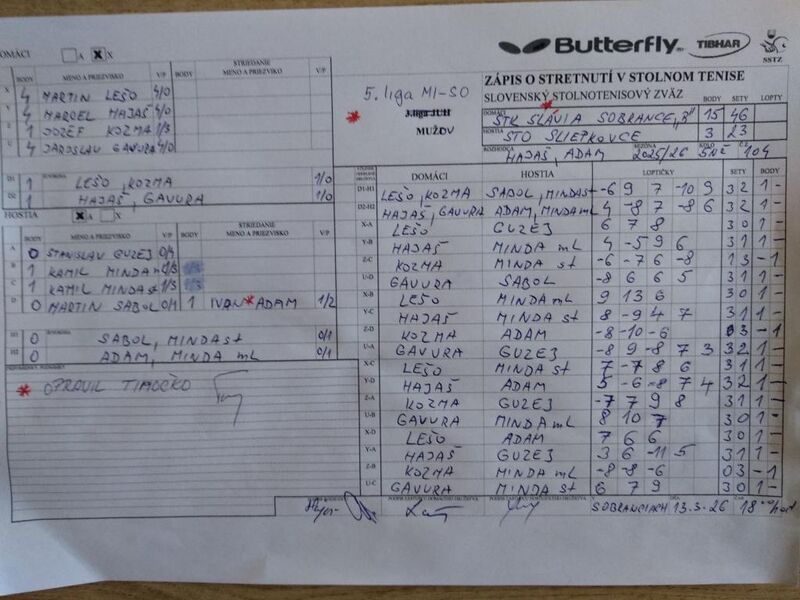 DOMÁCI A X X
BODY MENO A PRIEZVISKO V/P BODY STRIEDANIE MENO A PRIEZVISKO V/P
X 4 MARTIN LEŠO 4/0
Y 4 MARCEL HAJAŠ 4/0
Z 1 JOZEF KOZMA 1/3
U 4 JAROSLAV GAVURA 4/0
D1 1 LEŠO, KOZMA 1/0
D2 1 HAJAŠ, GAVURA 1/0
HOSTIA X A
BODY MENO A PRIEZVISKO V/P BODY STRIEDANIE MENO A PRIEZVISKO V/P
A 0 STANISLAV GUZEJ 0/4
B 1 KAMIL MINDA ml 1/3
C 1 KAMIL MINDA st 1/3
D 0 MARTIN SABOL 0/1 1 IVAN ADAM 1/2
H1 0 SABOL, MINDA st 0/1
H2 0 ADAM, MINDA ml 0/1
* OPRAVIL TIMOČKO
Butterfly TIBHAR SSTZ
5. liga MI-SO
3.liga JUH
MUŽOV
ZÁPIS O STRETNUTÍ V STOLNOM TENISE
SLOVENSKÝ STOLNOTENISOVÝ ZVÄZ
BODY SETY LOPTY
DOMÁCI ŠTK SLÁVIA SOBRANCE „B" 15 46
HOSTIA STO SLIEPKOVCE 3 23
ROZHODCA HAJAŠ, ADAM SEZÓNA 2025/26 KOLO 5NČ 104
DOMÁCI HOSTIA LOPTIČKY SETY BODY
D1-H1 LEŠO, KOZMA SABOL, MINDA st -6 9 7 -10 9 3 2 1 -
D2-H2 HAJAŠ, GAVURA ADAM, MINDA ml 4 -8 7 -8 6 3 2 1 -
X-A LEŠO GUZEJ 6 7 8 3 0 1 -
Y-B HAJAŠ MINDA ml 4 -5 9 6 3 1 1 -
Z-C KOZMA MINDA st -6 -7 6 -8 1 3 - 1
U-D GAVURA SABOL -8 6 6 5 3 1 1 -
X-B LEŠO MINDA ml 9 13 6 3 0 1 -
Y-C HAJAŠ MINDA st 8 -9 4 7 3 1 1 -
Z-D KOZMA ADAM -8 -10 -6 0 3 - 1
U-A GAVURA GUZEJ -8 9 -8 7 3 3 2 1 -
X-C LEŠO MINDA st 7 -7 8 6 3 1 1 -
Y-D HAJAŠ ADAM 5 -6 -8 7 4 3 2 1 -
Z-A KOZMA GUZEJ -7 7 9 8 3 1 1 -
U-B GAVURA MINDA ml 8 10 7 3 0 1 -
X-D LEŠO ADAM 7 6 6 3 0 1 -
Y-A HAJAŠ GUZEJ 3 6 -11 5 3 1 1 -
Z-B KOZMA MINDA ml -8 -8 -6 0 3 - 1
U-C GAVURA MINDA st 6 7 9 3 0 1 -
SOBRANCIACH 13.3.26 18 00 hod